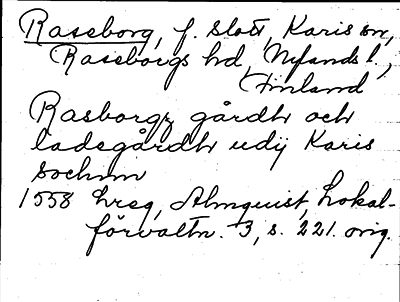 Raseborg, f. slott, Karis sn,
Raseborgs hd, Nylands l.,
Finland
Rasborgz gårdh och
ladegårdh udij Karis
sochnn
1558 hreg, Almquist, Lokal-
förvaltn. 3, s. 221. orig.